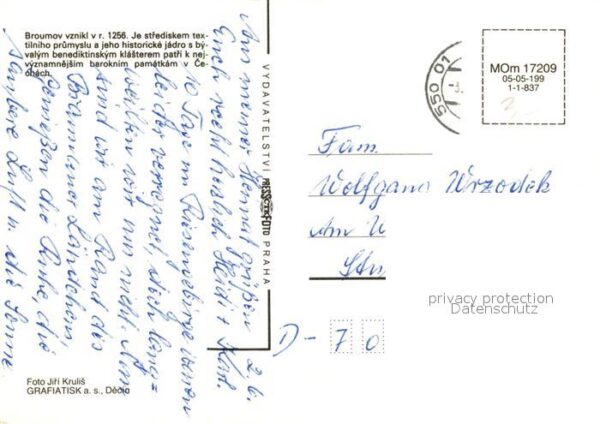 Broumov vznikl v r. 1256. Je střediskem tex-
tilního průmyslu a jeho historické jádro s bý-
valým benediktinským klášterem patří k nej-
významnějším barokním památkám v Če-
chách.
2. 6.
Von meiner Heimat grüßen
Euch recht herzlich Heidi + Karl.
10 Tage im Riesengebirge waren
leider verregnet, doch lange
weilten wir uns nicht. Nun
sind wir am Rand des
Braunauer Ländchen,
genießen die Ruhe, die
saubere Luft u. die Sonne.
VYDAVATELSTVÍ PRESSFOTO PRAHA
Foto Jiří Kruliš
GRAFIATISK a. s., Děčín
550 01
MOm 17209
05-05-199
1-1-837
Fam.
Wolfgang Wrzodek
Am
D - 70
privacy protection
Datenschutz